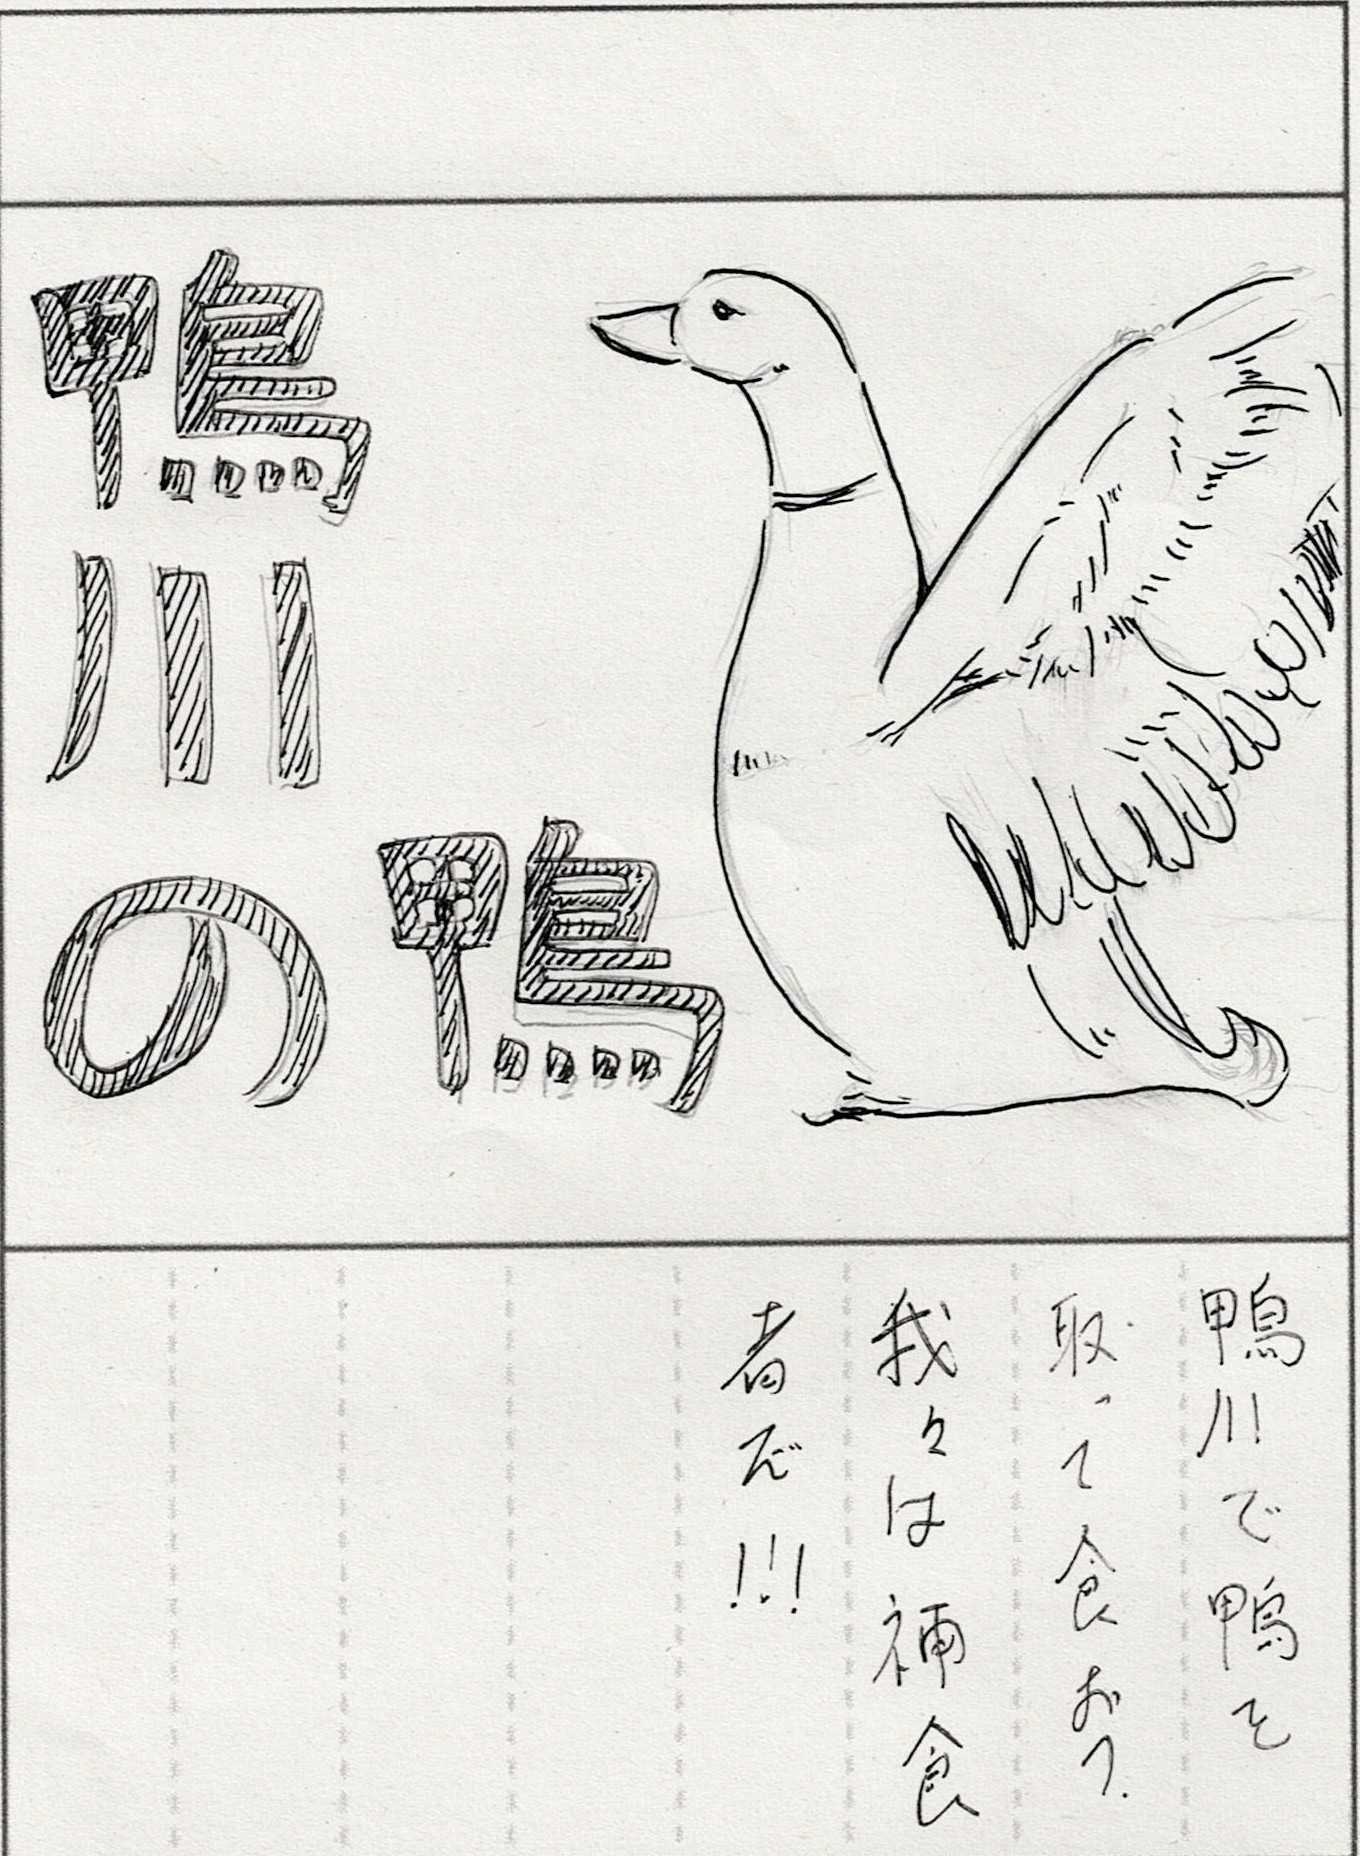 鴨川の鴨
鴨川で鴨を
取って食おう.
我々は補食
者だ!!!